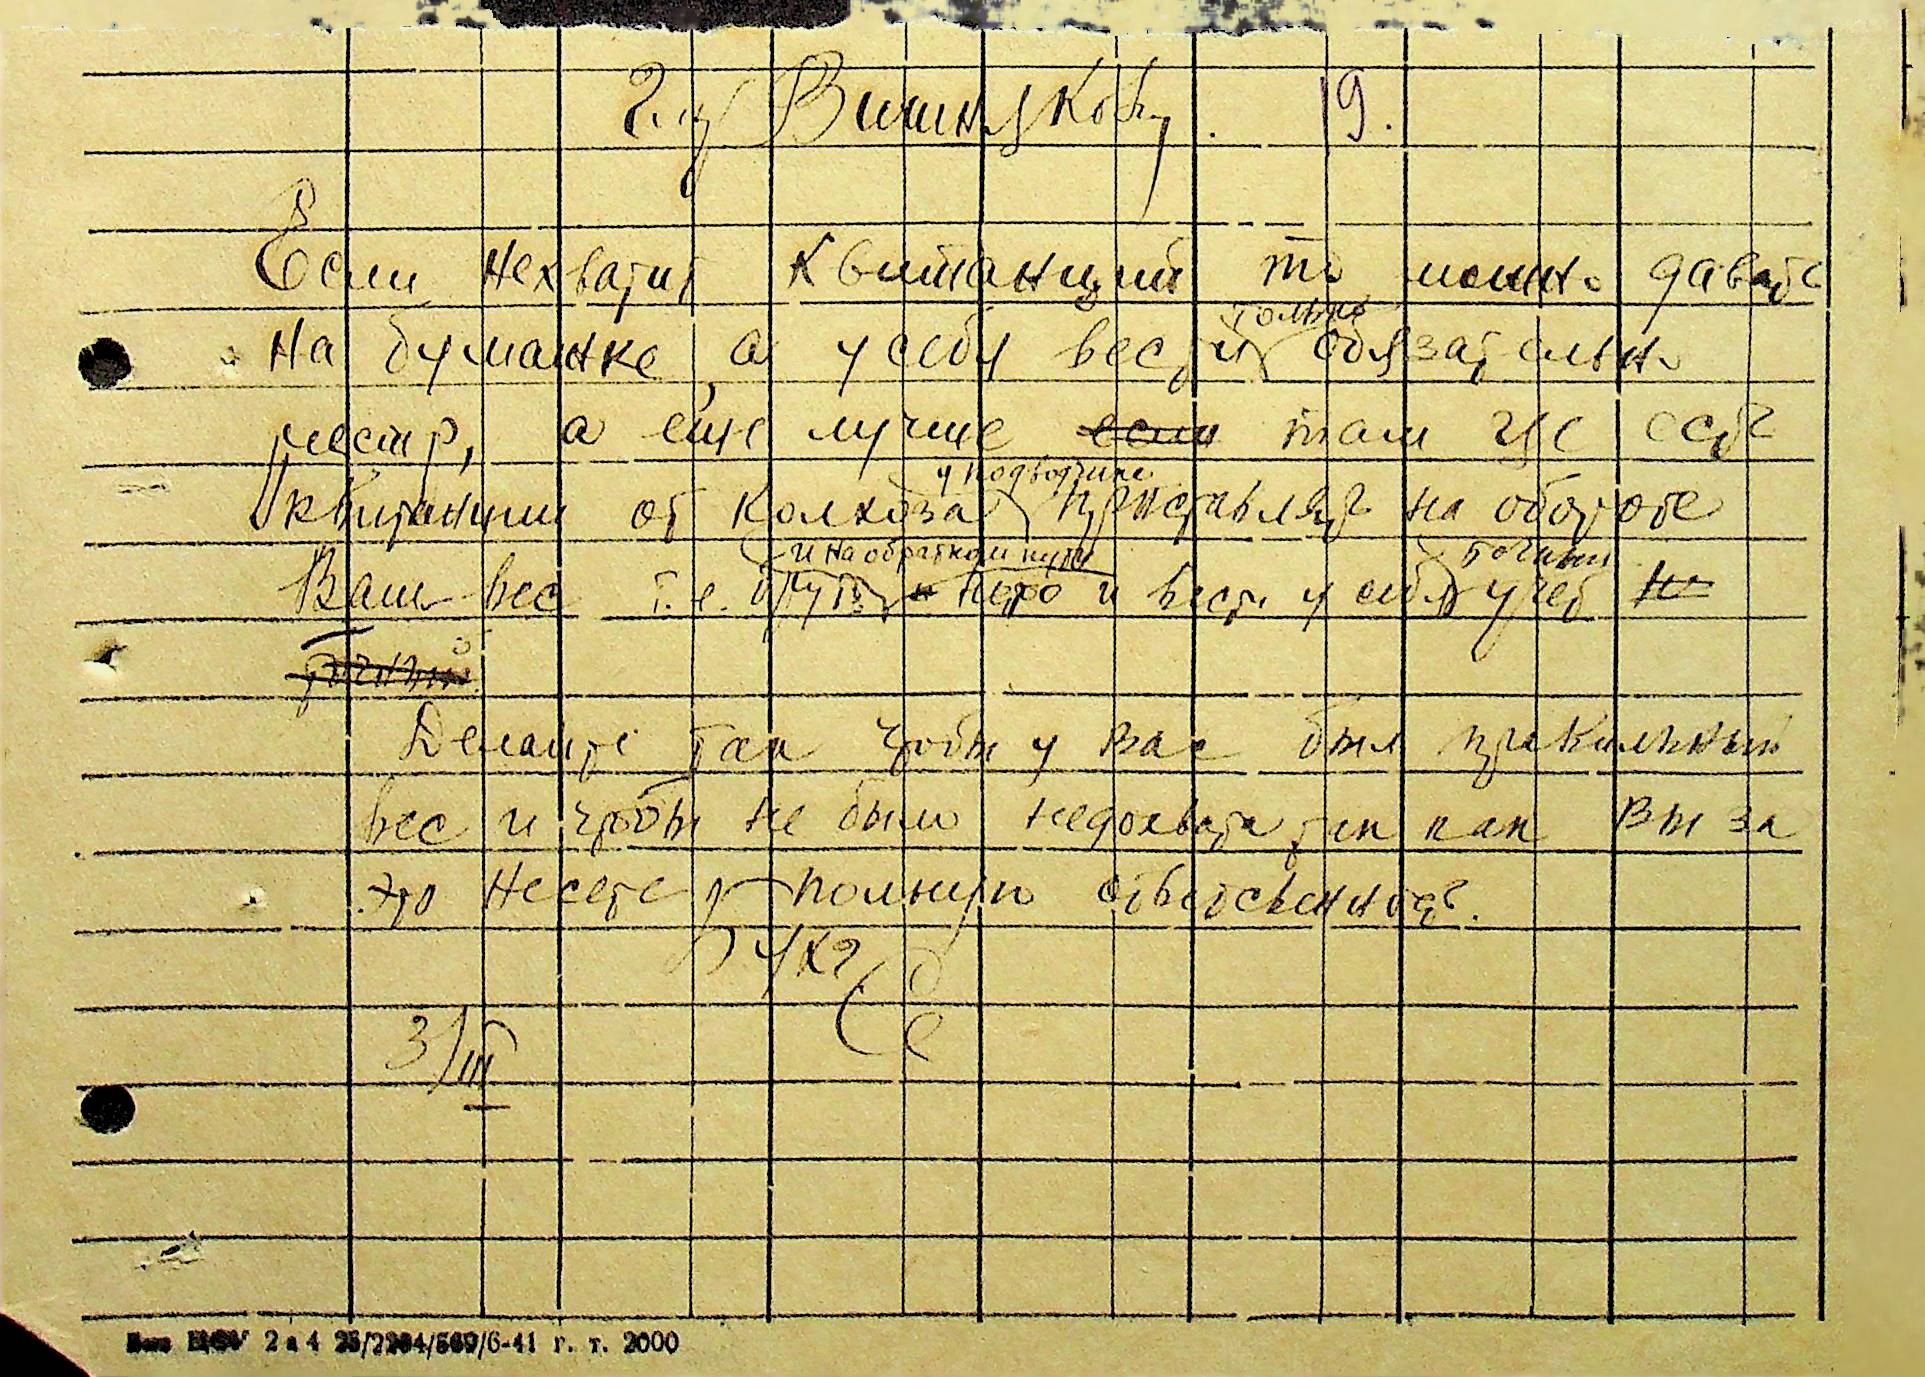 Г-ну Вишнякову. 19.
Если нехватит квитанций то можно давать
на бумажке, а у себя вести только обязательно
реестр, а еще лучше если там где есть
квитанции от колхоза у подводчика проставлять на обороте
Ваш вес т.е. брутто и на обратном пути нетто и вести у себя точный учет не
точный
Делайте так чтобы у Вас был правильный
вес и чтобы не было недохвата так как Вы за
это несете полную ответсвенность.
3/III
2 а 4 25/2284/569/6-41 г. т. 2000